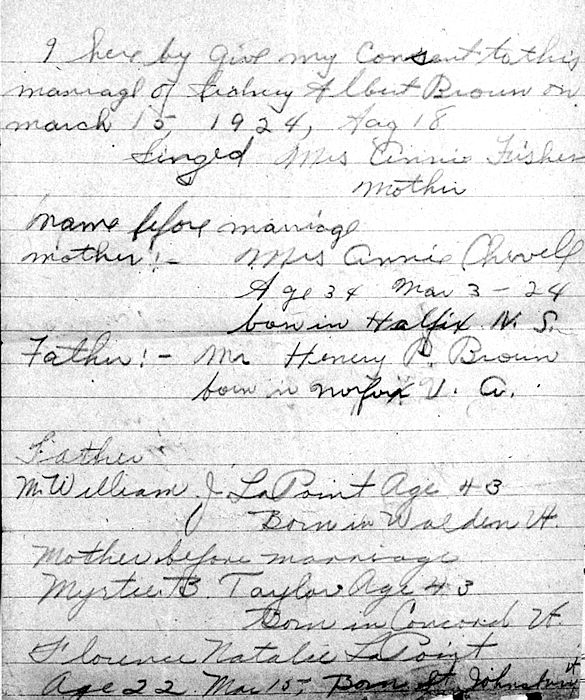 I here by give my Consent to this
marriage of Sidney Albert Brown on
march 15, 1924, Aag 18
Singed Mrs Annie Fisher
mother
name before marriage
mother:- Mrs Annie Chevell
Age 34 Mar 3-24
born in Halfix N. S.
Father:- Mr Henery P. Brown
born in norfox V. A.
Father
Mr William J. LaPoint Age 43
Born in Walden Vt.
Mother before marriage
Myrtie B. Taylor Age 43
Born in Concord Vt.
Florence Natalie LaPoint
Age 22 Mar 15, Born St. Johnsbury Vt